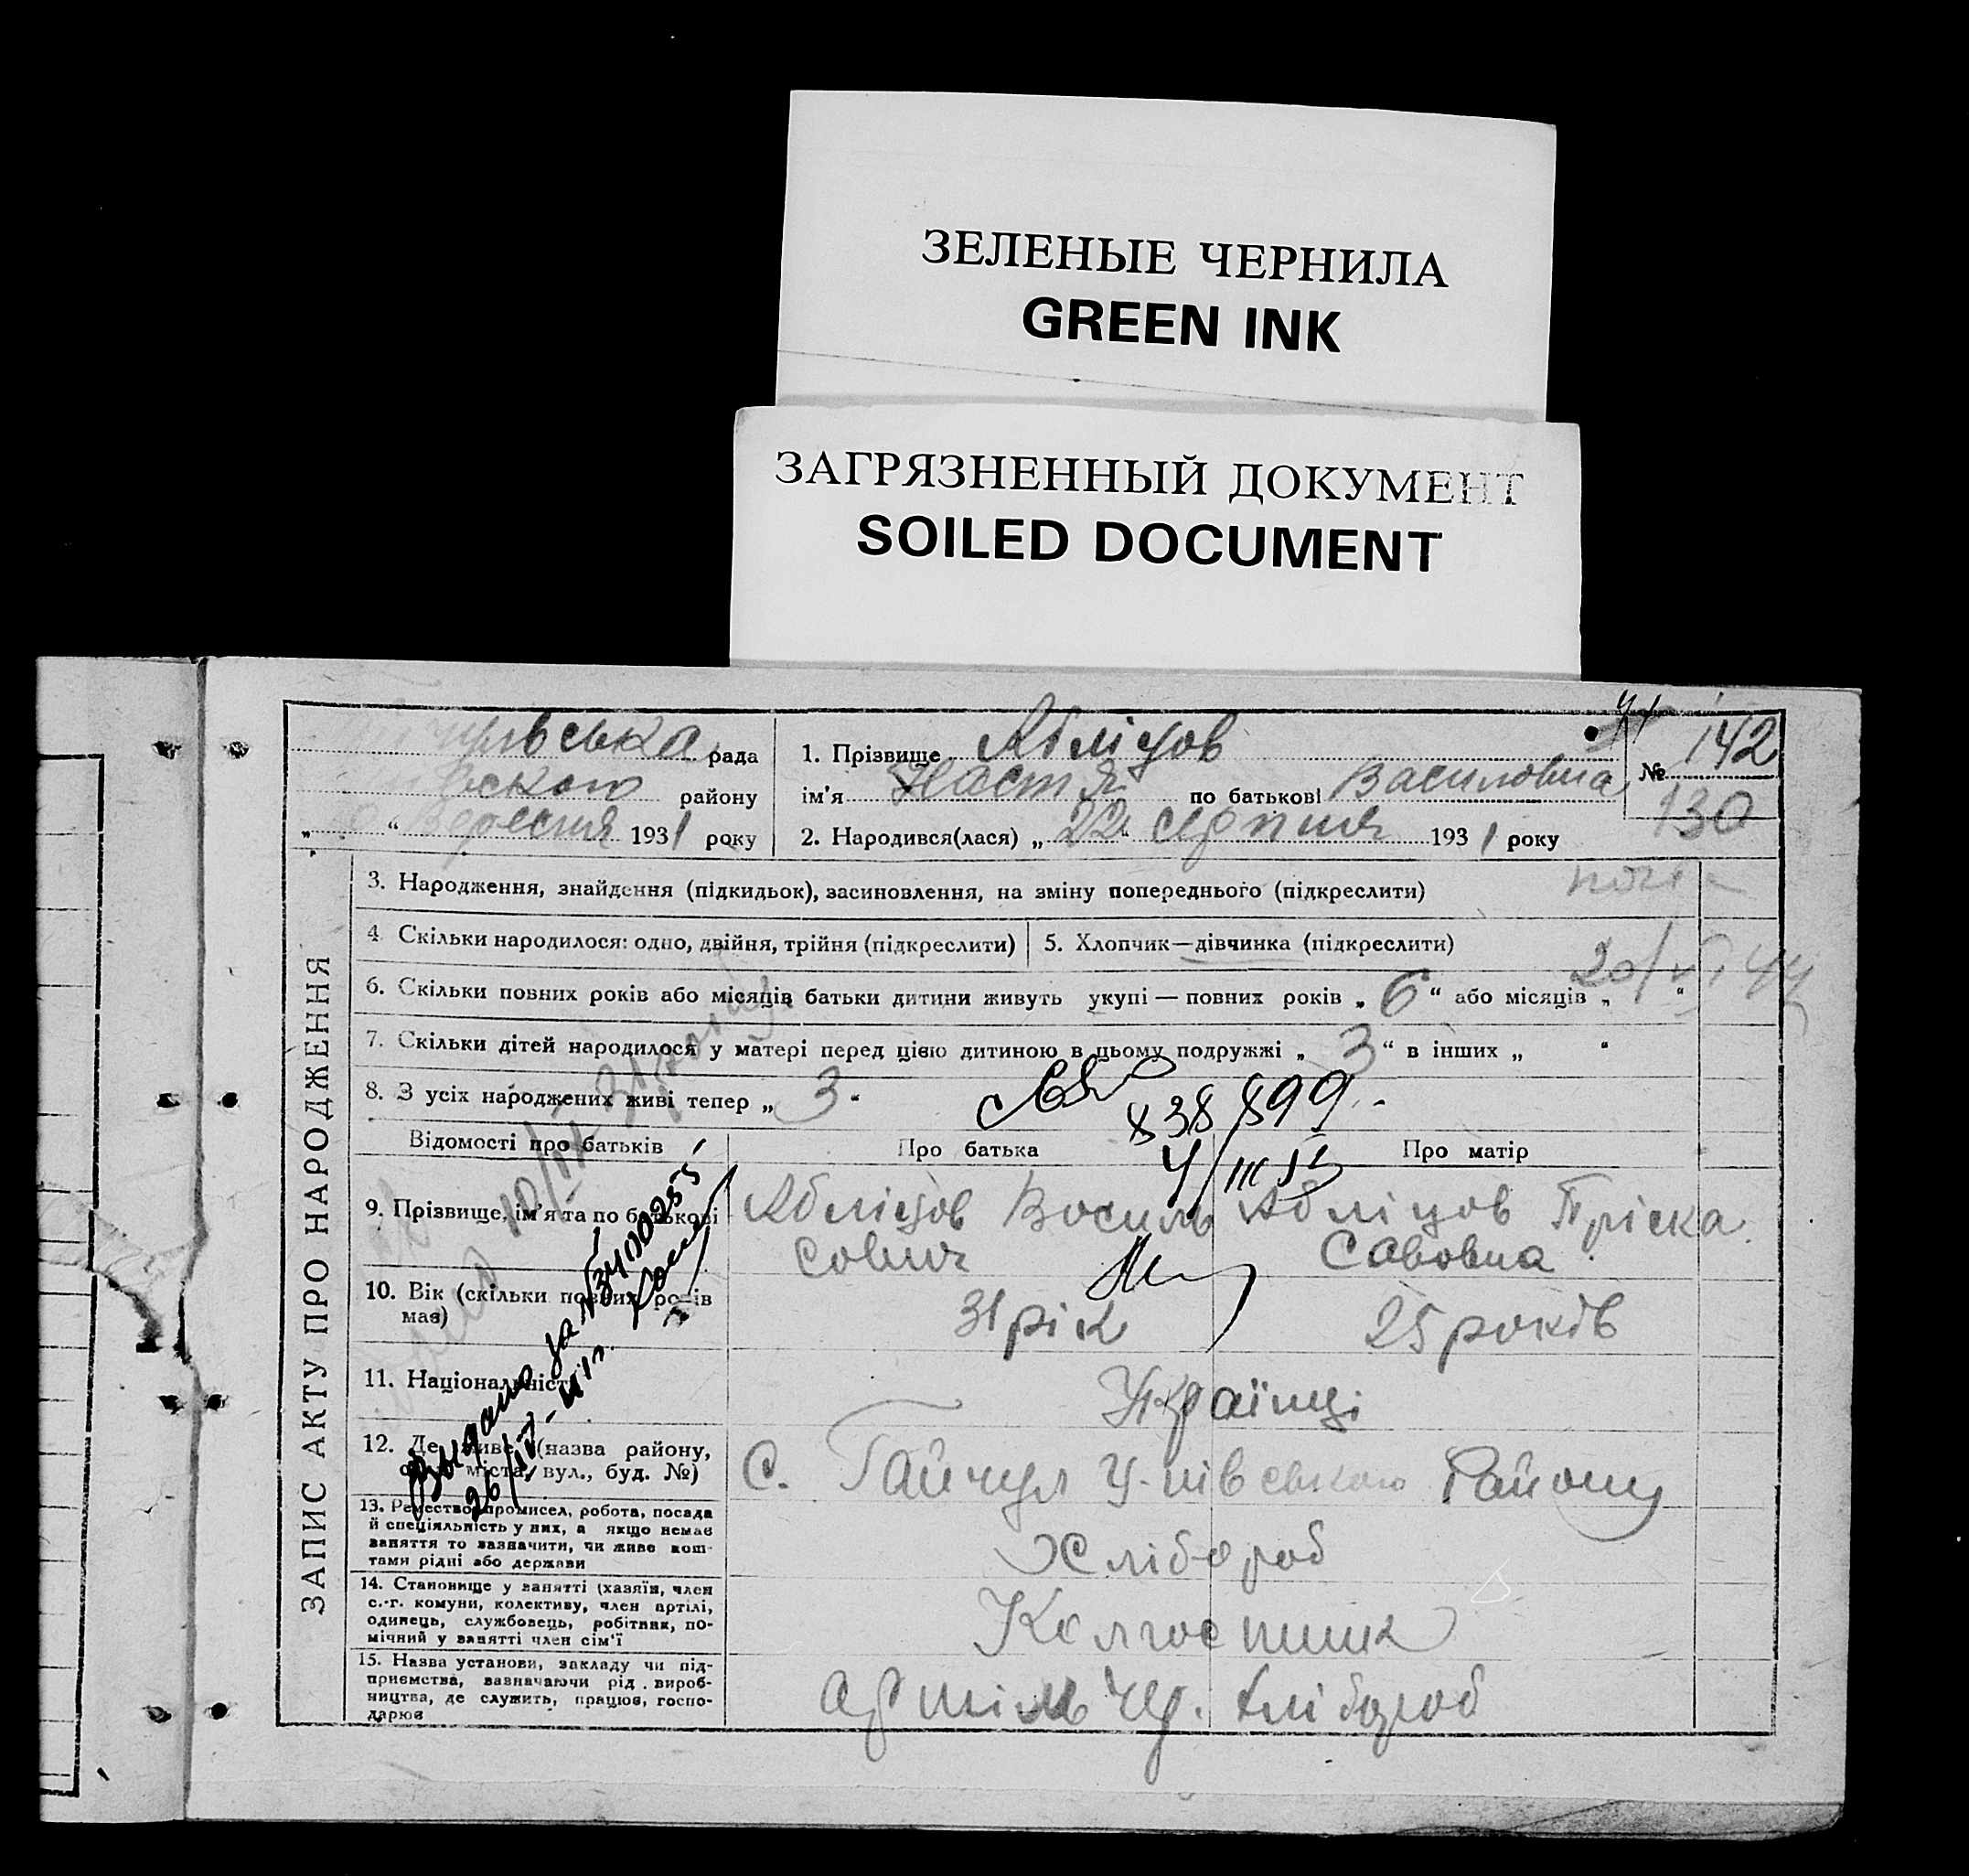 ЗЕЛЕНЫЕ ЧЕРНИЛА
GREEN INK
ЗАГРЯЗНЕННЫЙ ДОКУМЕНТ
SOILED DOCUMENT
рада
району
„ “ Вересня 1931 року
1. Прізвище Абліцов
ім'я Настя по батькові Василовна
2. Народився(лася) „22“ серпня 1931 року
№ 142
130
ЗАПИС АКТУ ПРО НАРОДЖЕННЯ
3. Народження, знайдення (підкидьок), засиновлення, на зміну попереднього (підкреслити)
4. Скільки народилося: одно, двійня, трійня (підкреслити)
5. Хлопчик—дівчинка (підкреслити)
6. Скільки повних років або місяців батьки дитини живуть укупі — повних років „6“ або місяців „ “
7. Скільки дітей народилося у матері перед цією дитиною в цьому подружжі „3“ в інших „ “
8. З усіх народжених живі тепер „3“
838899
Відомості про батьків
Про батька
Про матір
9. Прізвище, ім'я та по батькові
Абліцов Василь
Абліцов Пріска
Савовна
10. Вік (скільки повних років має)
31 рік
25 років
11. Національність
Українці
12. Де живе (назва району, міста, вул., буд. №)
С. Гайчул У-півського Району
13. Ремество, промисел, робота, посада
й спеціяльність у них, а якщо немає
заняття то зазначити, чи живе кош-
тами рідні або держави
Хлібороб
14. Становище у занятті (хазяїн, член
с.-г. комуни, колективу, член артілі,
одинець, службовець, робітник, по-
мічний у занятті член сім'ї
Колгоспник
15. Назва установи, закладу чи під-
приємства, зазначаючи рід вироб-
ництва, де служить, працює, госпо-
дарює
Артіль Чер. Хлібороб
Выдано за № 3400255